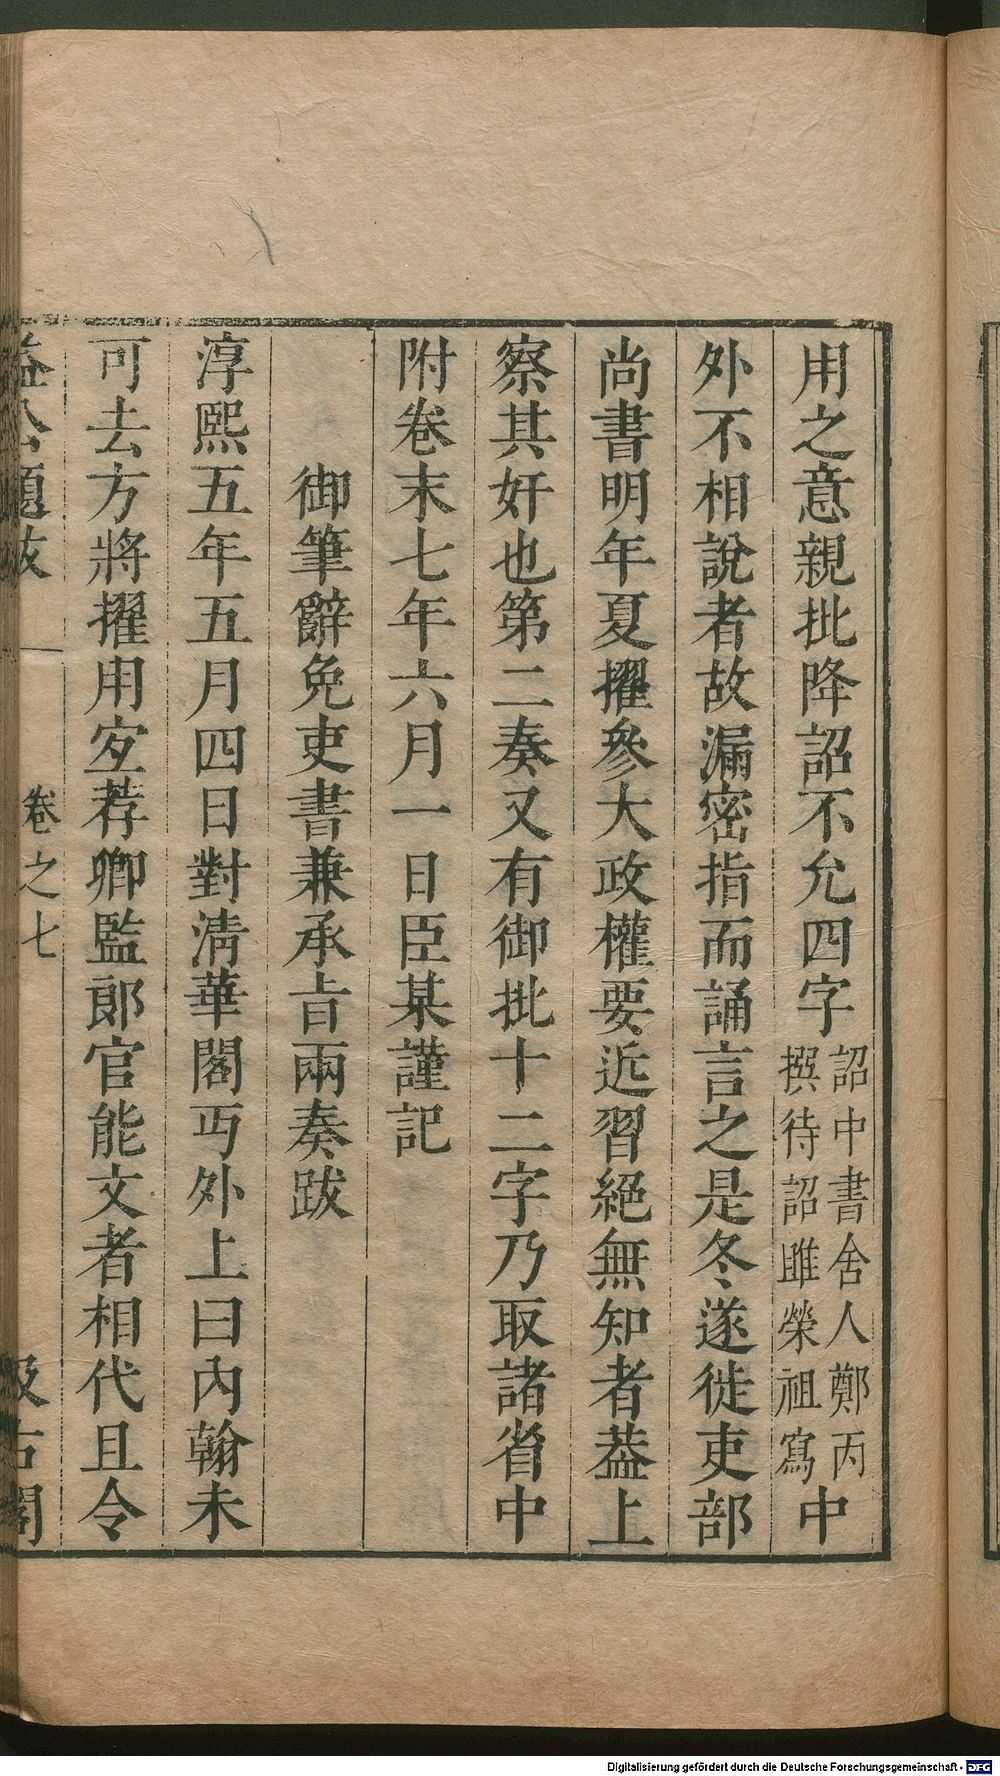 用之意親批降詔不允四字詔中書舍人鄭丙撰待詔雎榮祖寫中
外不相說者故漏密指而誦言之是冬遂徙吏部
尚書明年夏擢參大政權要近習絕無知者葢上
察其奸也第二奏又有御批十二字乃取諸省中
附卷末七年六月一日臣某謹記
御筆辭免吏書兼承㫖兩奏跋
淳熙五年五月四日對清華閣丐外上曰內翰未
可去方將擢用宐荐卿監郎官能文者相代且令
益公題跋 卷之七 汲古閣
Digitalisierung gefördert durch die Deutsche Forschungsgemeinschaft - DFG